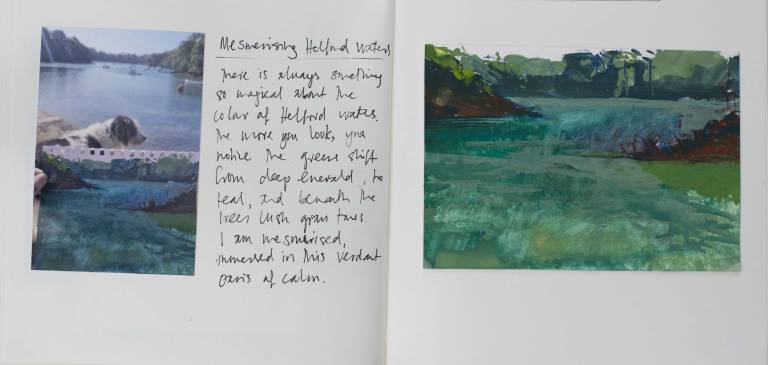 Mesmerising Helford Waters
There is always something
so magical about the
color of Helford waters.
The more you look, you
notice the greens shift
from deep emerald, to
teal, and beneath the
trees lush green tones.
I am mesmerised,
immersed in this verdant
oasis of calm.